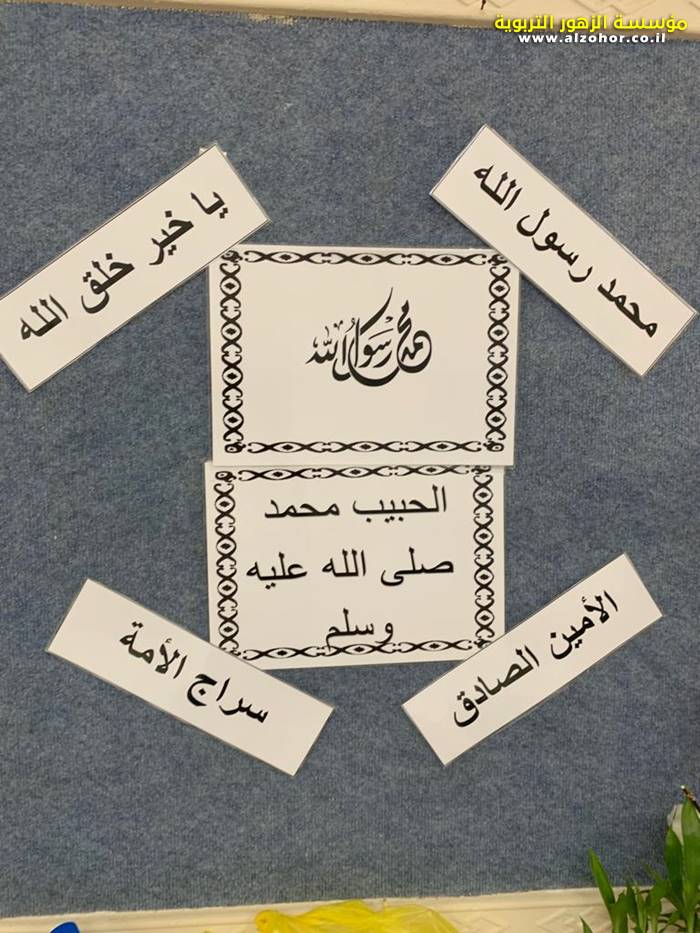 مؤسسة الزهور التربوية
www.alzohor.co.il
محمد رسول الله
يا خير خلق الله
محمد رسول الله
الحبيب محمد
صلى الله عليه
وسلم
الأمين الصادق
سراج الأمة